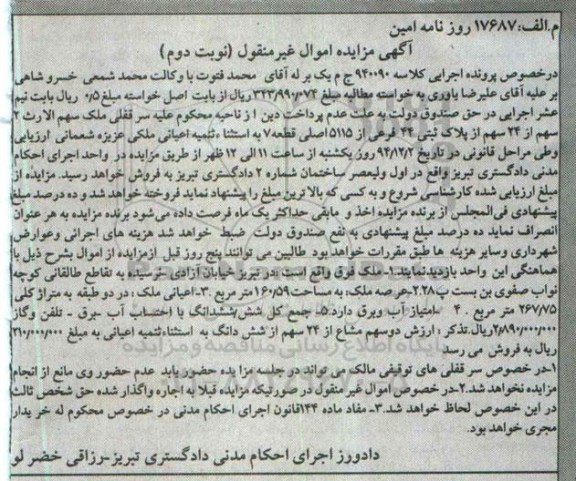 م.الف:۱۷۶۸۷ روز نامه امین
آگهی مزایده اموال غیر منقول (نوبت دوم)
درخصوص پرونده اجرایی کلاسه ۹۴۰۰۹۰ ج م یک بر له آقای محمد فتوت با وکالت محمد شمعی خسرو شاهی
بر علیه آقای علیرضا یاوری به خواسته مطالبه مبلغ ۳۴۳/۹۹۰/۰۷۴ ریال از بابت اصل خواسته مبلغ ۰/۵ ریال بابت نیم
عشر اجرایی در حق صندوق دولت به علت عدم پرداخت دین از ناحیه محکوم علیه سر قفلی ملک سهم الارث ۲
سهم از ۲۴ سهم از پلاک ثبتی ۴۴ فرعی از ۵۱۱۵ اصلی قطعه ۷ به استثناء ثمنیه اعیانی ملکی عزیزه شعمانی ارزیابی
وطی مراحل قانونی در تاریخ ۹۴/۱۲/۲ روز یکشنبه از ساعت ۱۱ الی ۱۲ ظهر از طریق مزایده در واحد اجرای احکام
مدنی دادگستری تبریز واقع در اول ولیعصر ساختمان شماره ۲ دادگستری تبریز به فروش خواهد رسید. مزایده از
مبلغ ارزیابی شده کارشناسی شروع و به کسی که بالا ترین مبلغ را پیشنهاد نماید فروخته خواهد شد و ده درصد مبلغ
پیشنهادی فی المجلس از برنده مزایده اخذ و مابقی حداکثر یک ماه فرصت داده می شود برنده مزایده به هر عنوان
انصراف نماید ده درصد مبلغ پیشنهادی به نفع صندوق دولت ضبط خواهد شد هزینه های اجرائی وعوارض
شهرداری وسایر هزینه ها طبق مقررات خواهد بود طالبین می توانند پنج روز قبل ازمزایده از اموال بشرح ذیل با
هماهنگی این واحد بازدید نمایند.۱- ملک فوق واقع است :در تبریز خیابان آزادی نرسیده به تقاطع طالقانی کوچه
نواب صفوی بن بست پ۲.۲۸-عرصه ملک: به مساحت ۱۶۰/۵۹ متر مربع .۳-اعیانی ملک : در دو طبقه به متراژ کلی
۲۶۷/۷۵ متر مربع . ۴ امتیاز آب وبرق دارد ۵- جمع کل شش ششدانگ با احتساب آب -برق - تلفن وگاز
۲/۸۹۰/۰۰۰/۰۰۰ریال.تذکر : ارزش دوسهم مشاع از ۲۴ سهم از شش دانگ به استثناء ثمنیه اعیانی به مبلغ ۲۱۰/۰۰۰/۰۰۰
ریال به فروش می رسد
۱-در خصوص سر قفلی های توقیفی مالک می تواند در جلسه مزا یده حضور یابد عدم حضور وی مانع از انجام
مزایده نخواهد شد.۲-در خصوص اموال غیر منقول در صورتیکه مزایده قبلا به اجاره واگذار شده حق شخص ثالث
در این خصوص لحاظ خواهد شد.۳- مفاد ماده ۱۴۴قانون اجرای احکام مدنی در خصوص محکوم له خر یدار
مجری خواهد بود.
دادورز اجرای احکام مدنی دادگستری تبریز-رزاقی خضر لو
پایگاه اطلاع رسانی مناقصه و مزایده